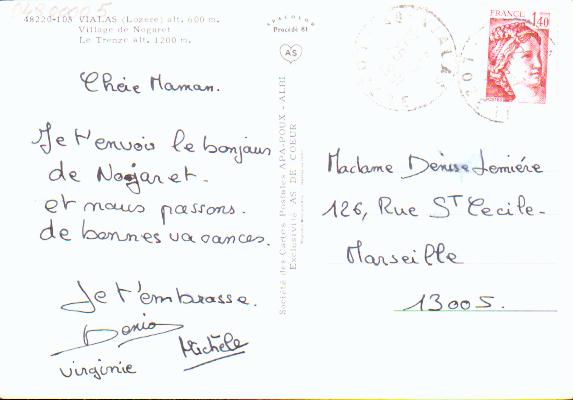 48220-103 VIALAS (Lozère) alt. 600 m.
Village de Nogaret
Le Trenze alt. 1200 m.
APACOLOR
Procédé 61
AS
FRANCE
1,40
POSTES
Chère Maman.
Je t'envois le bonjour
de Nogaret.
et nous passons.
de bonnes vacances.
Je t'embrasse.
Denis
Michèle
virginie
Société des Cartes Postales APA-POUX - ALBI
Exclusivité AS DE COEUR
Madame Denise Lemière
126, Rue ST Cecile-
Marseille
13005.